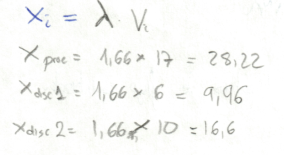 Xi = λ Vi
Xproc = 1,66 × 17 = 28,22
Xdisc1 = 1,66 × 6 = 9,96
Xdisc2 = 1,66 × 10 = 16,6